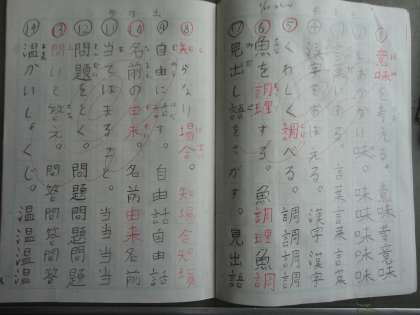 ①意味を考える。意味考意味
かい味。味味味味味
言葉
④漢字をおぼえる。漢字漢字
⑤くわしく調べる。調調調調
⑥魚を調理する。魚調理魚調
⑦見出し語をさがす。見出語
⑧知らない場合。知場合知場
⑨自由に話す。自由話自由話
⑩名前の由来。名前由来名前
⑪当てはまる。当当当当
⑫問題をとく。問題問題問題
⑬問いと答え。問答問答問答
⑭温かいしょくじ。温温温温